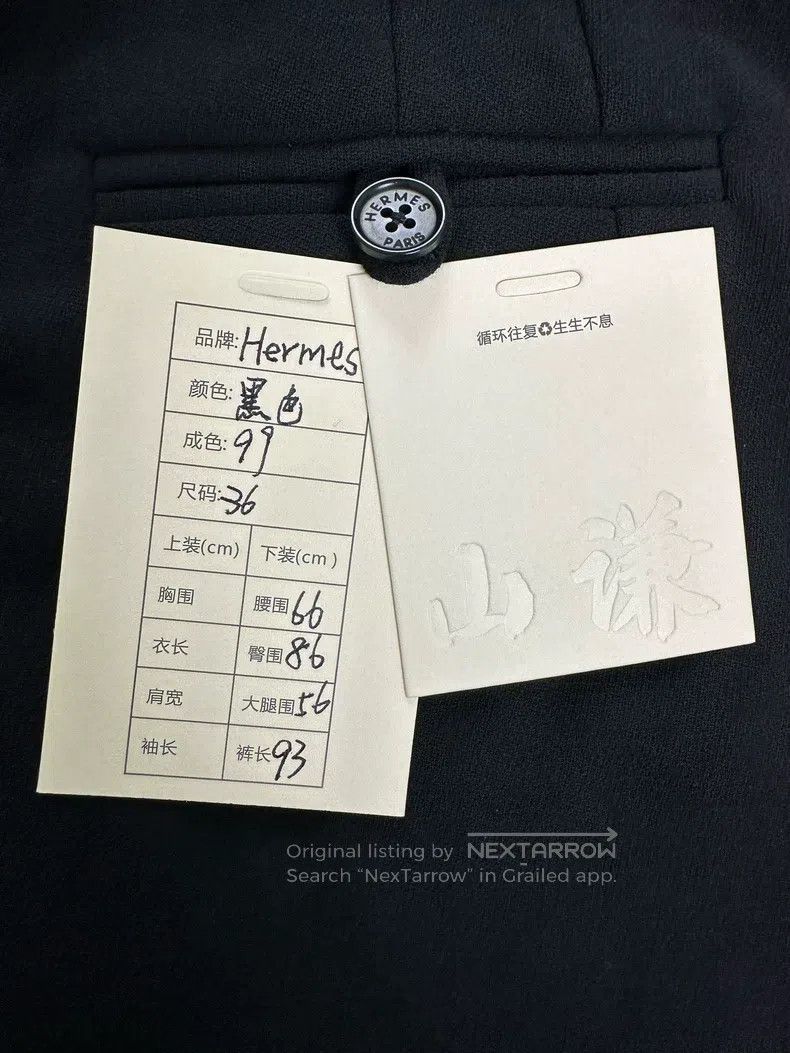 HERMES
PARIS
品牌:Hermes
颜色:黑色
成色:99
尺码:36
上装(cm) 下装(cm)
胸围 腰围66
衣长 臀围86
肩宽 大腿围56
袖长 裤长93
循环往复♻生生不息
山谦
Original listing by NEXTARROW
Search "NexTarrow" in Grailed app.